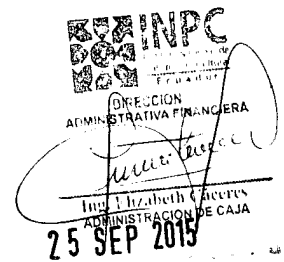 INPC
de
Ecuador
DIRECCION
ADMINISTRATIVA FINANCIERA
Ing. Elizabeth Cáceres
ADMINISTRACION DE CAJA
25 SEP 2015